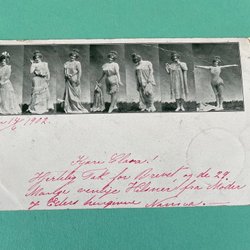 14/ 1902.
Kjære Olava!
Hjertlig Tak for Brevet og de 29.
Mange venlige Hilsner fra Moder
og Eders hengivne